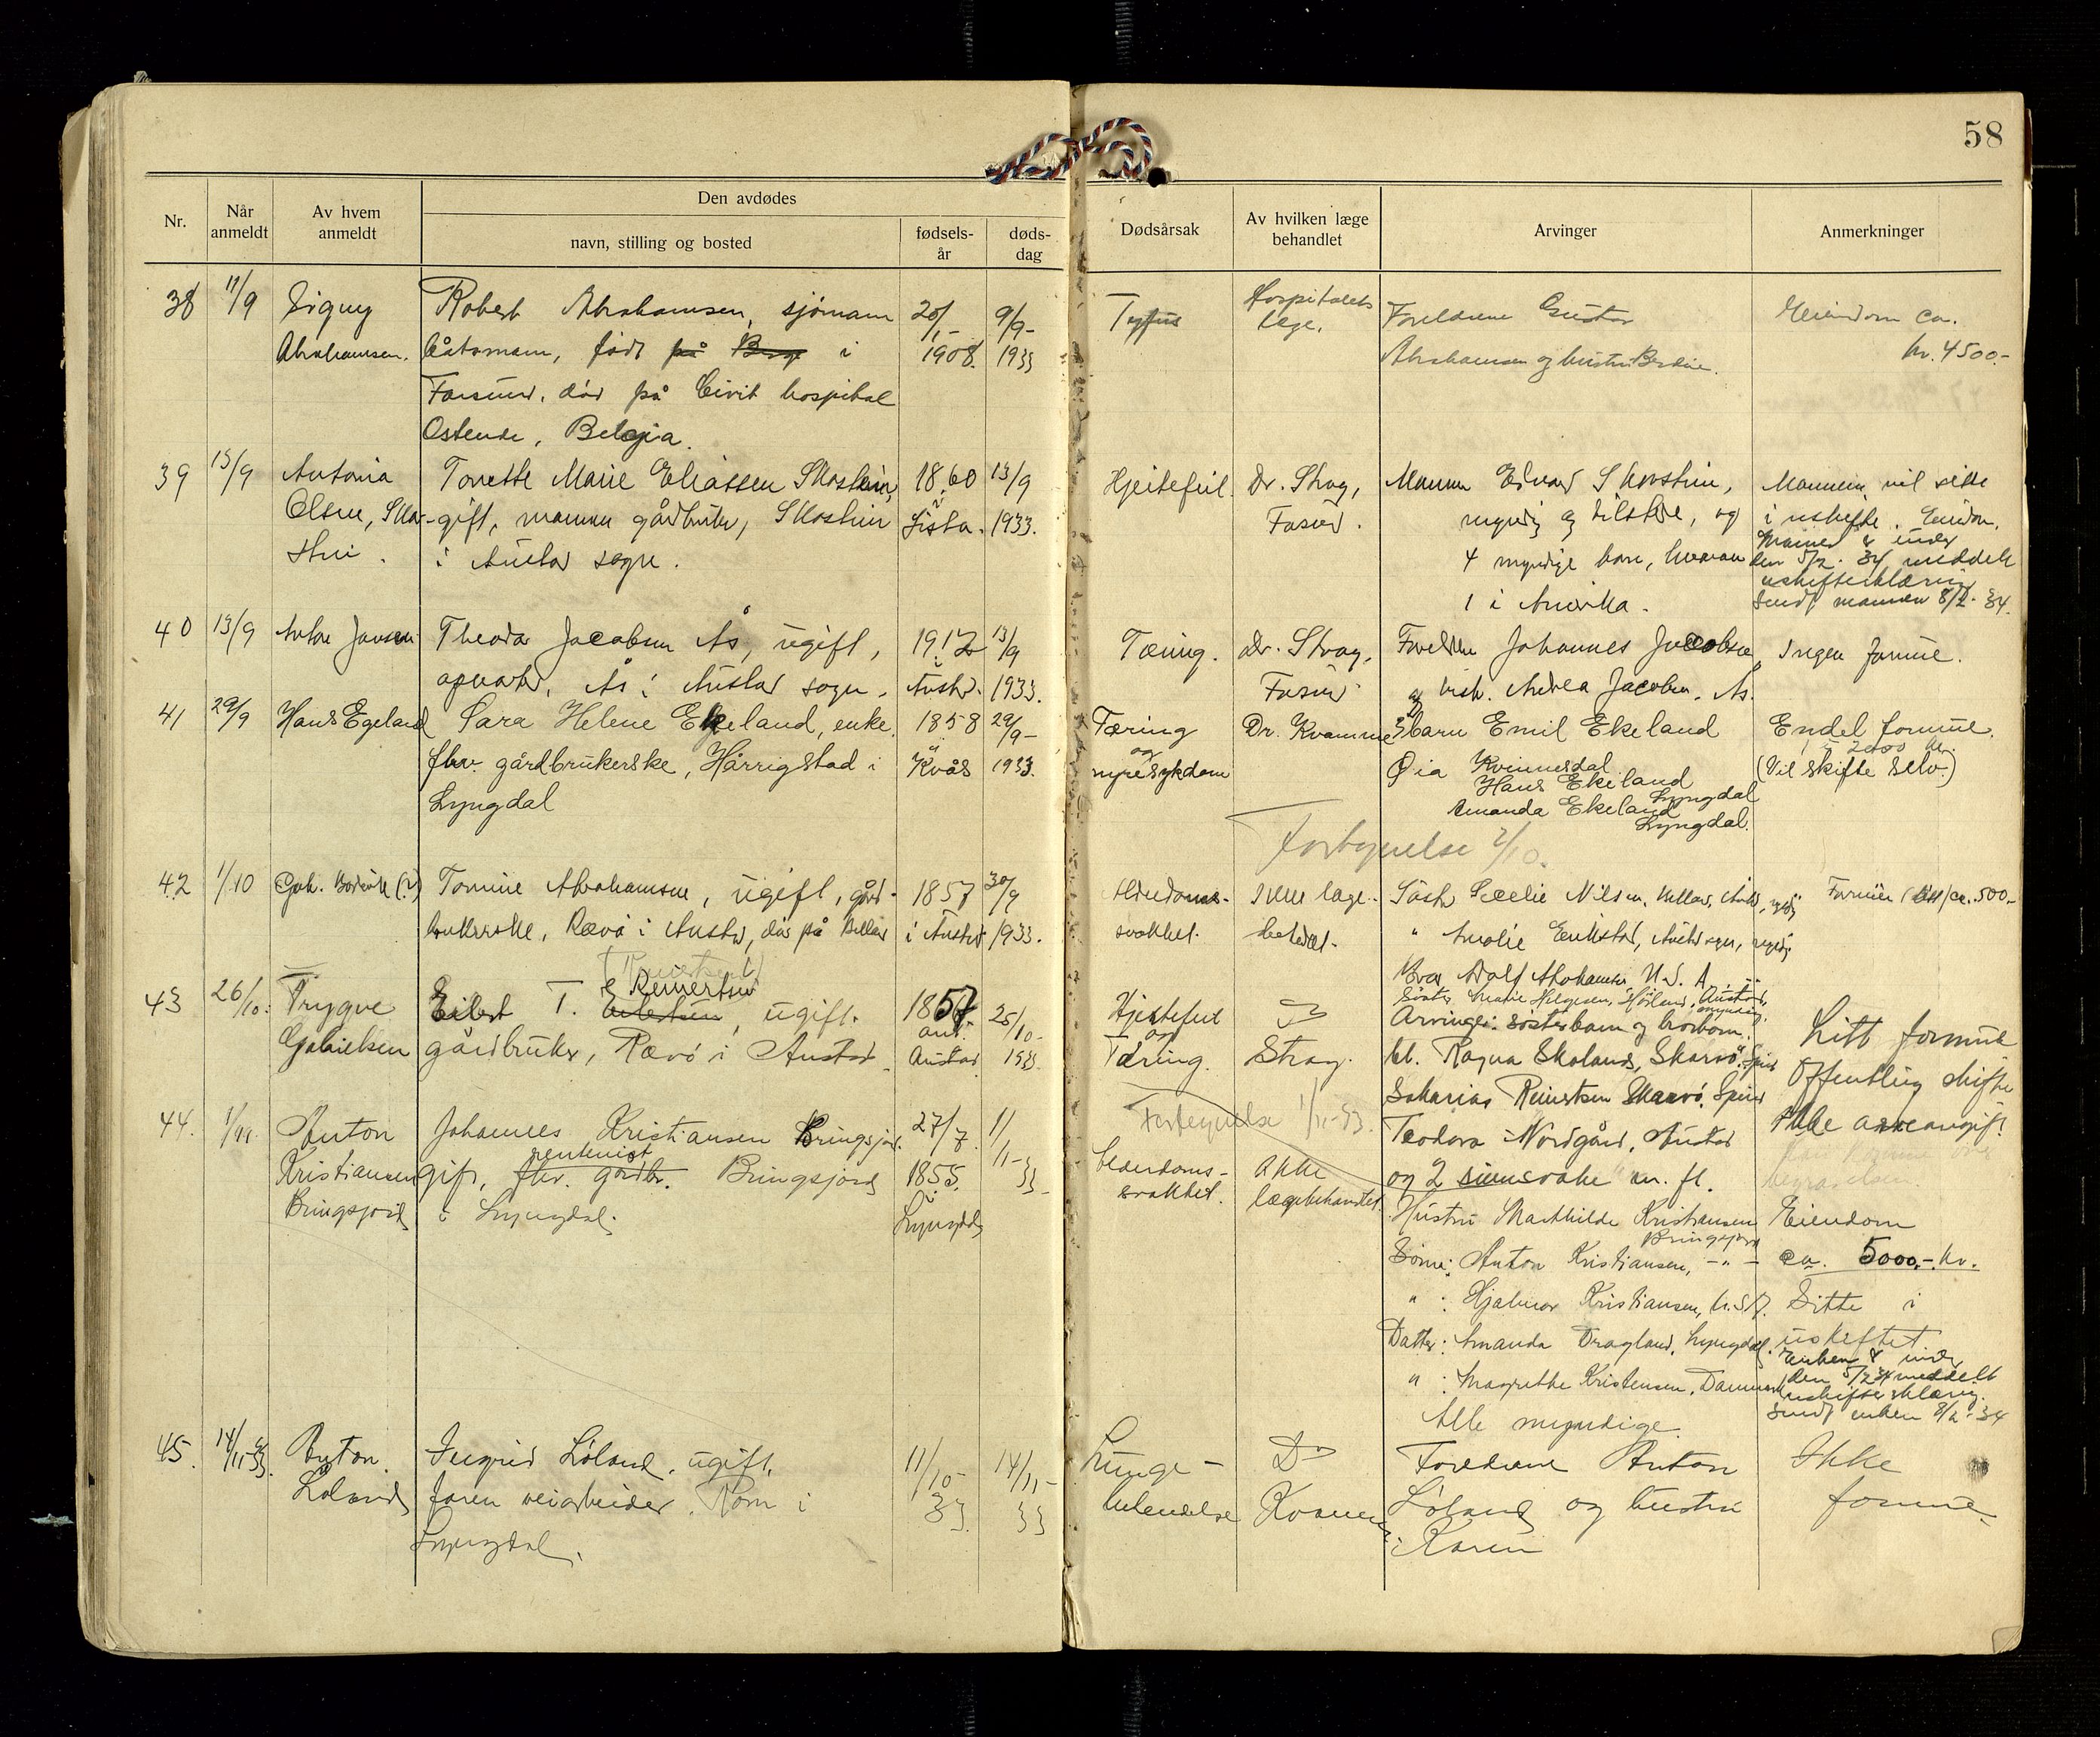 58
Nr.
Når anmeldt
Av hvem anmeldt
Den avdødes
navn, stilling og bosted
fødsels-år
døds-dag
Dødsårsak
Av hvilken læge behandlet
Arvinger
Anmerkninger
38
11/9
Signy
Abrahamsen.
Robert Abrahamsen, sjömann
båtsmann, född på i
Farsund, död på Civil hospital
Ostende, Belgia.
20/1-
1908.
9/9-
1933
Tyfus
Hospitalets
læge.
Foreldrene Gustav
Abrahamsen og hustru Berdine.
Eiendom ca.
kr. 4500.-
39
13/9
Antonia
Olsen, Skar-
stein.
Tonette Marie Eliassen Skarstein,
gift, mannen gårdbruker, Skarstein
i Austad sogn.
1860
i
Lista.
13/9
1933.
Hjertefeil.
Dr. Strag,
Farsund.
Mannen Edvard Skarstein,
myndig og tilstede, og
4 myndige barn, hvorav
1 i Amerika.
Mannen vil sitte
i uskifte. Eiendom.
Mannen er under
den 5/2. 34 meddelt
uskifteerklæring
Sendt mannen 8/2. 34.
40
13/9
Anton Jansen
Theodor Jacobsen Ås, ugift,
Ås i Austad sogn.
1912
i
Austad.
13/9
1933.
Tæring.
Dr. Strag,
Farsund
Foreldre Johannes Jacobsen
og hustr. Andrea Jacobsen, Ås.
Ingen formue.
41
29/9
Hans Egeland
Sara Helene Ekeland, enke,
fhv. gårdbrukerske, Hårrigstad i
Lyngdal
1858
i
Kvås
29/9-
1933.
Tæring
og
nyresykdom
Dr. Kvamme
3 barn Emil Ekeland
Øia Kvinesdal
Hans Ekeland
Lyngdal
Amanda Ekeland
Lyngdal.
Endel formue.
2000 kr.
(Vil skifte selv.)
Forbynelse 2/10.
42
1/10
Tomine Abrahamsen, ugift, gård-
brukerske, Rævö i Austad, död på
1857
i Austad
30/9
1933.
Alderdoms-
svakhet.
Søster Nilsen,
" Amalie Erikstad, Austad sogn, myndig
Bror Adolf Abrahamsen, U.S.A.
Søster Marie Helgesen, Høiland, Austad,
myndig.
Formue (litt) ca. 500.-
43
26/10.
Trygve
Gabrielsen
(Reinertsen)
Reinertsen
Eilert T. Eilertsen, ugift.
gårdbruker, Rævö i Austad
1857
ant.
Austad
25/10-
1933.
Hjertefeil
og
Tæring.
Dr
Strag.
Arvinger: søsterbarn og brorbarn.
bl. Ragna Skoland, Skarvö, Spind
Sakarias Reinertsen Skarvö, Spind
Teodora Nordgård, Austad
og 2 sinnsvake m. fl.
Litt formue
Offentlig skifte
Ikke arveavgift.
begravelsen.
44.
1/11.
Anton
Kristiansen
Bringsjord
Johannes Kristiansen Bringsjord.
rentenist
gift, fhv. gårdbr. Bringsjord
i Lyngdal.
27/7.
1855.
i
Lyngdal
1/11-
33
Forbynelse 1/11-33.
Alderdoms-
svakhet.
Ikke
lægebehandlet.
Hustru Mathilde Kristiansen
Bringsjord
Sønn: Anton Kristiansen, -"-
" : Hjalmar Kristiansen, U.S.A.
Datter: Amanda Dragland, Lyngdal.
" : Magrethe Kristensen, Danmark
Alle myndige.
Eiendom
ca. 5000,-. kr.
Sitte i
uskiftet
Enken er under
den 5/2 34 meddelt
uskifteerklæring.
Sendt enken 8/2-34
45.
14/11-33.
Anton
Løland
Ingrid Løland, ugift,
faren veiarbeider. Rom i
Lyngdal.
11/10-
33.
14/11-
33
Lunge-
betendelse
Dr
Kvamme
Foreldrene Anton
Løland og hustru
Karen
Ikke
formue.